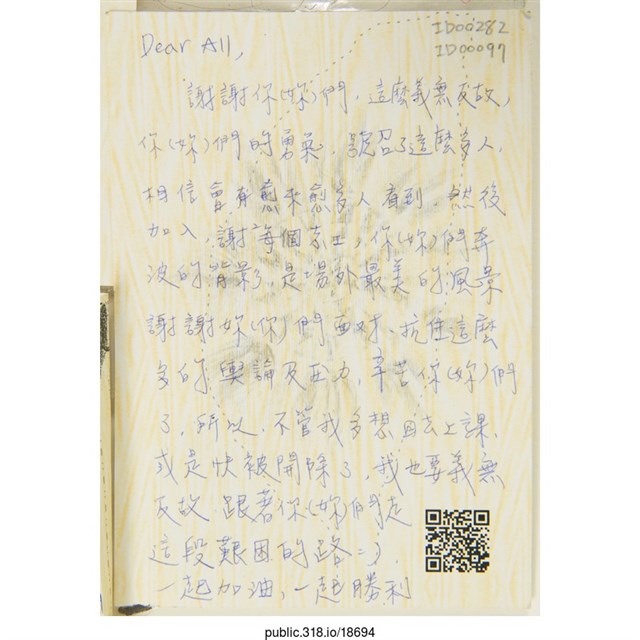 ID00282
ID00097
Dear All,
謝謝你(妳)們,這麼義無反故,
你(妳)們的勇氣,號召了這麼多人,
相信會有愈來愈多人看到,然後
加入,謝每個志工,你(妳)們奔
波的背影,是場外最美的風景
謝謝妳(你)們面對、抗住這麼
多的輿論及壓力,辛苦你(妳)們
了,所以,不管我多想回去上課,
或是快被開除了,我也要義無
反故 跟著你(妳)們走
這段艱困的路=),
一起加油,一起勝利
public.318.io/18694